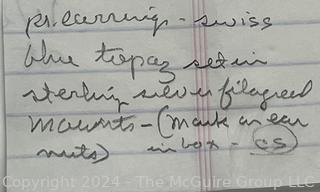 pr. earrings - swiss
blue topaz set in
sterling silver filagreed
mounts - (mark on ear
nuts) in box - CS
Copyright © 2024 - The McGuire Group LLC